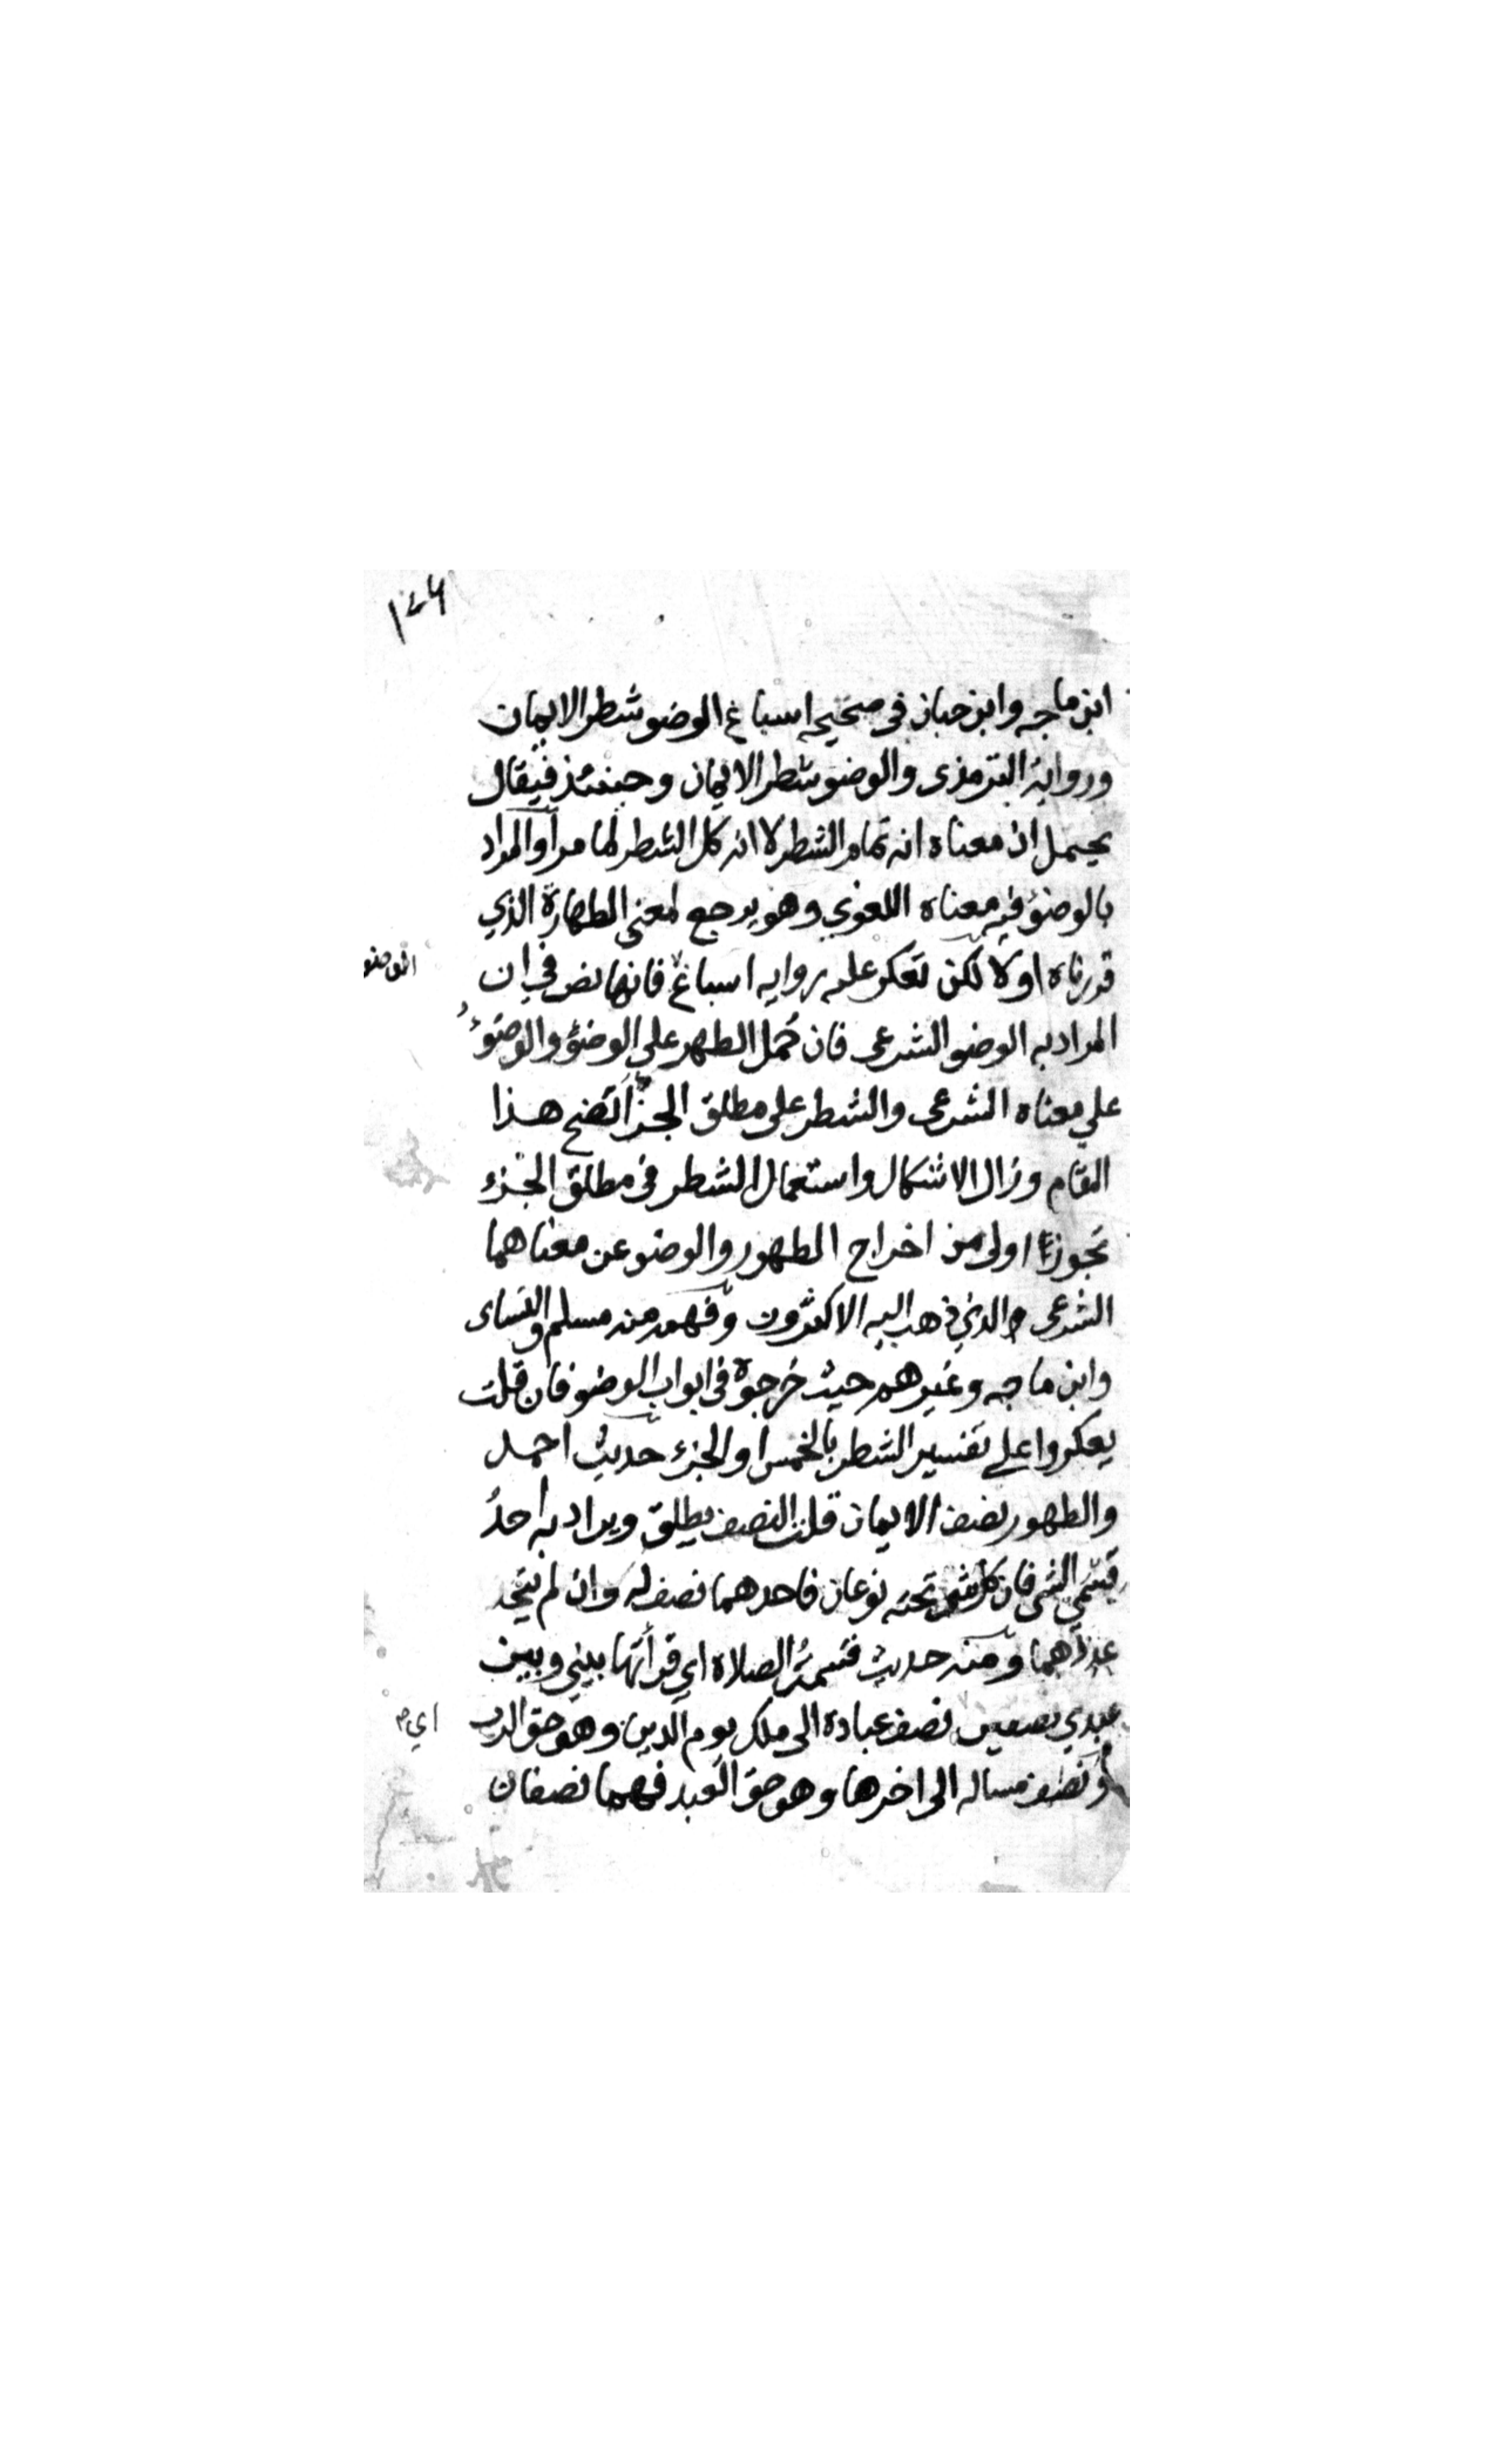 ١٤٦
ابن ماجه وابن حبان في صحيحه اسباغ الوضو شطر الايمان
ورواية الترمذى والوضو شطر الايمان وحينئذ فيقال
يحتمل ان معناه انه تمام الشطر لا انه كل الشطر لما مر أو المراد
بالوضؤ فيه معناه اللغوي وهو يرجع لمعنى الطهارة الذي
قدرناه اولا لكن تعكر عليه روايه اسباغ فانها نص في ان
الوضو
المراد به الوضو الشرعى فان حُمل الطهر علي الوضؤ والوضؤ
علي معناه الشرعى والشطر على مطلق الجزأ اتضح هذا
المقام وزال الاشكال واستعمال الشطر فى مطلق الجزء
تجوزًا اولى من اخراج الطهور والوضو عن معناهما
الشرعى والذي ذهب اليه الاكثرون وفهمه منه مسلم والنساى
وابن ماجه وغيرهم حيث خرجوه فى ابواب الوضو فان قلت
يعكروا على تفسير الشطر بالخمس او الجزء حديث احمد
والطهور نصف الايمان قلت النصف يطلق ويراد به أحدُ
قسمي الشى فان كل شى تحته نوعان فاحدهما نصف له وان لم يتحد
عددهما ومنه حديث قسمتُ الصلاة اي قرأتها بيني وبين
عبدي نصفين نصف عبادة الى ملك يوم الدين وهو حق الرب
اي
ونصف مساله الى اخرها وهو حق العبد فهما نصفان